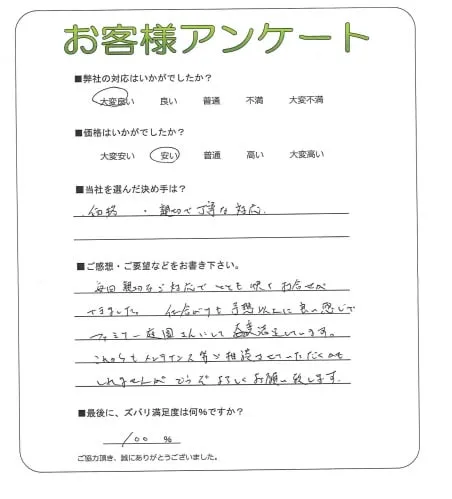 お客様アンケート
■弊社の対応はいかがでしたか？
大変良い 良い 普通 不満 大変不満
■価格はいかがでしたか？
大変安い 安い 普通 高い 大変高い
■当社を選んだ決め手は？
・価格 ・親切で丁寧な対応.
■ご感想・ご要望などをお書き下さい。
毎回親切なご対応で とても 快く お任せが
できました。 仕上がりも 予想以上に良い感じで
ファミリー庭園さんにして 満足しています。
これからも メンテナンス等 相談させていただくかも
しれませんが どうぞ よろしくお願い致します.
■最後に、ズバリ満足度は何％ですか？
100 %
ご協力頂き、誠にありがとうございました。